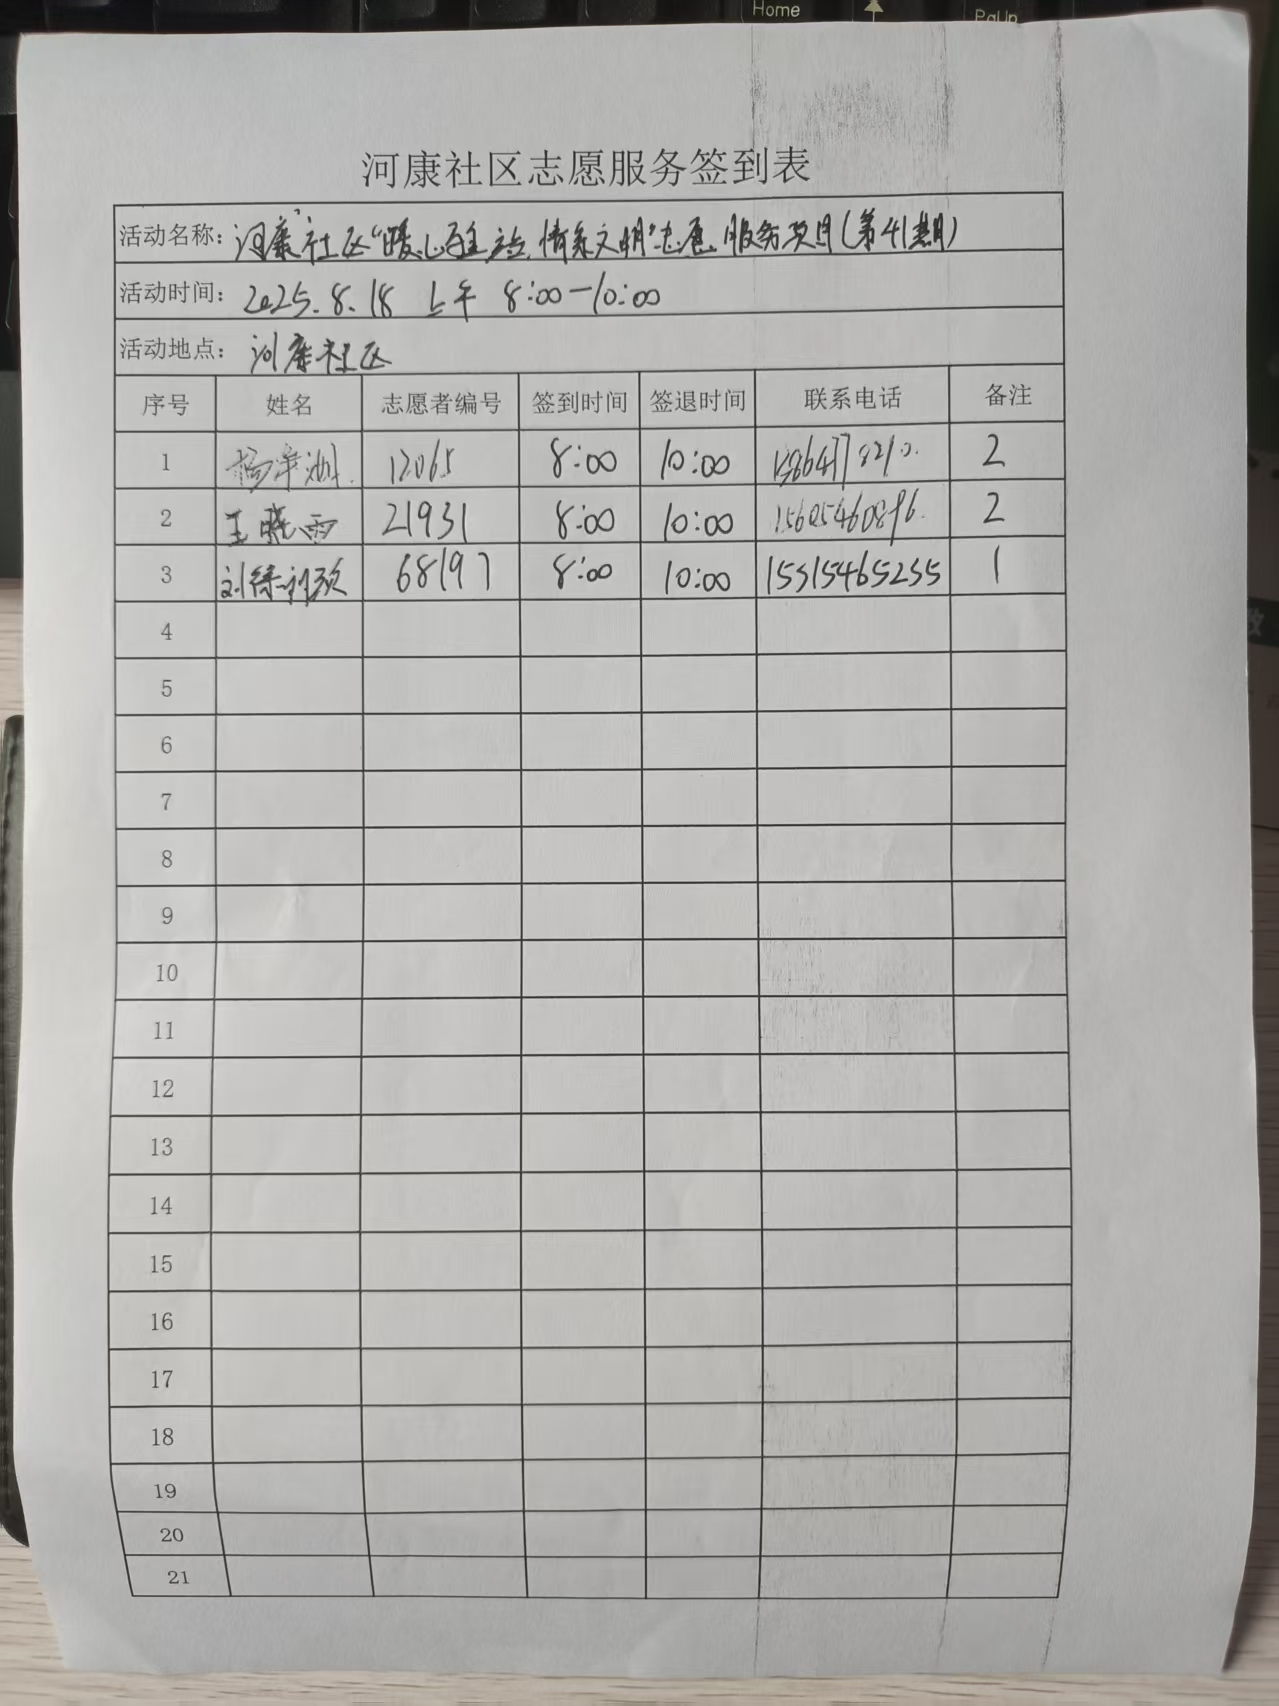 Home
PgUp
河康社区志愿服务签到表
活动名称: 河康社区"暖心驿站,情系文明"志愿服务项目(第41期)
活动时间: 2025.8.18 上午 8:00-10:00
活动地点: 河康社区
序号 姓名 志愿者编号 签到时间 签退时间 联系电话 备注
1 12065 8:00 10:00 2
2 王晓雨 21931 8:00 10:00 15605460896. 2
3 68197 8:00 10:00 15315465255 1
4
5
6
7
8
9
10
11
12
13
14
15
16
17
18
19
20
21